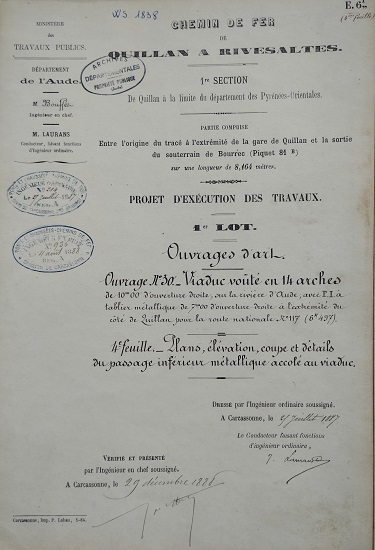 MINISTÈRE
des
TRAVAUX PUBLICS.
DÉPARTEMENT
de l'Aude.
M. Bouffet
Ingénieur en chef.
M. LAURANS
Conducteur, faisant fonctions
d'Ingénieur ordinaire.
WS 1838
E. 6
ARCHIVES
DÉPARTEMENTALES
PROPRIÉTÉ PUBLIQUE
(Aude)
CHEMIN DE FER
DE
QUILLAN A RIVESALTES.
1re SECTION
De Quillan à la limite du département des Pyrénées-Orientales.
PARTIE COMPRISE
Entre l'origine du tracé à l'extrémité de la gare de Quillan et la sortie
du souterrain de Bourrec (Piquet 81 B)
sur une longueur de 8,464 mètres.
PROJET D'EXÉCUTION DES TRAVAUX.
1er LOT.
Ouvrages d'art.
Ouvrage No 30. Viaduc voûté en 14 arches
de 10m00 d'ouverture droite, sur la rivière d'Aude, avec P. I. à
tablier métallique de 7m00 d'ouverture droite à l'extrémité du
côté de Quillan, pour la route nationale No 117
4e feuille. Plans, élévation, coupe et détails
du passage inférieur métallique accolé au viaduc.
DRESSÉ par l'Ingénieur ordinaire soussigné.
A Carcassonne, le juillet 1887
Le Conducteur faisant fonctions
d'ingénieur ordinaire,
VÉRIFIÉ ET PRÉSENTÉ
par l'Ingénieur en chef soussigné.
A Carcassonne, le 29 décembre 1888
Carcassonne, Imp. P. Labau,